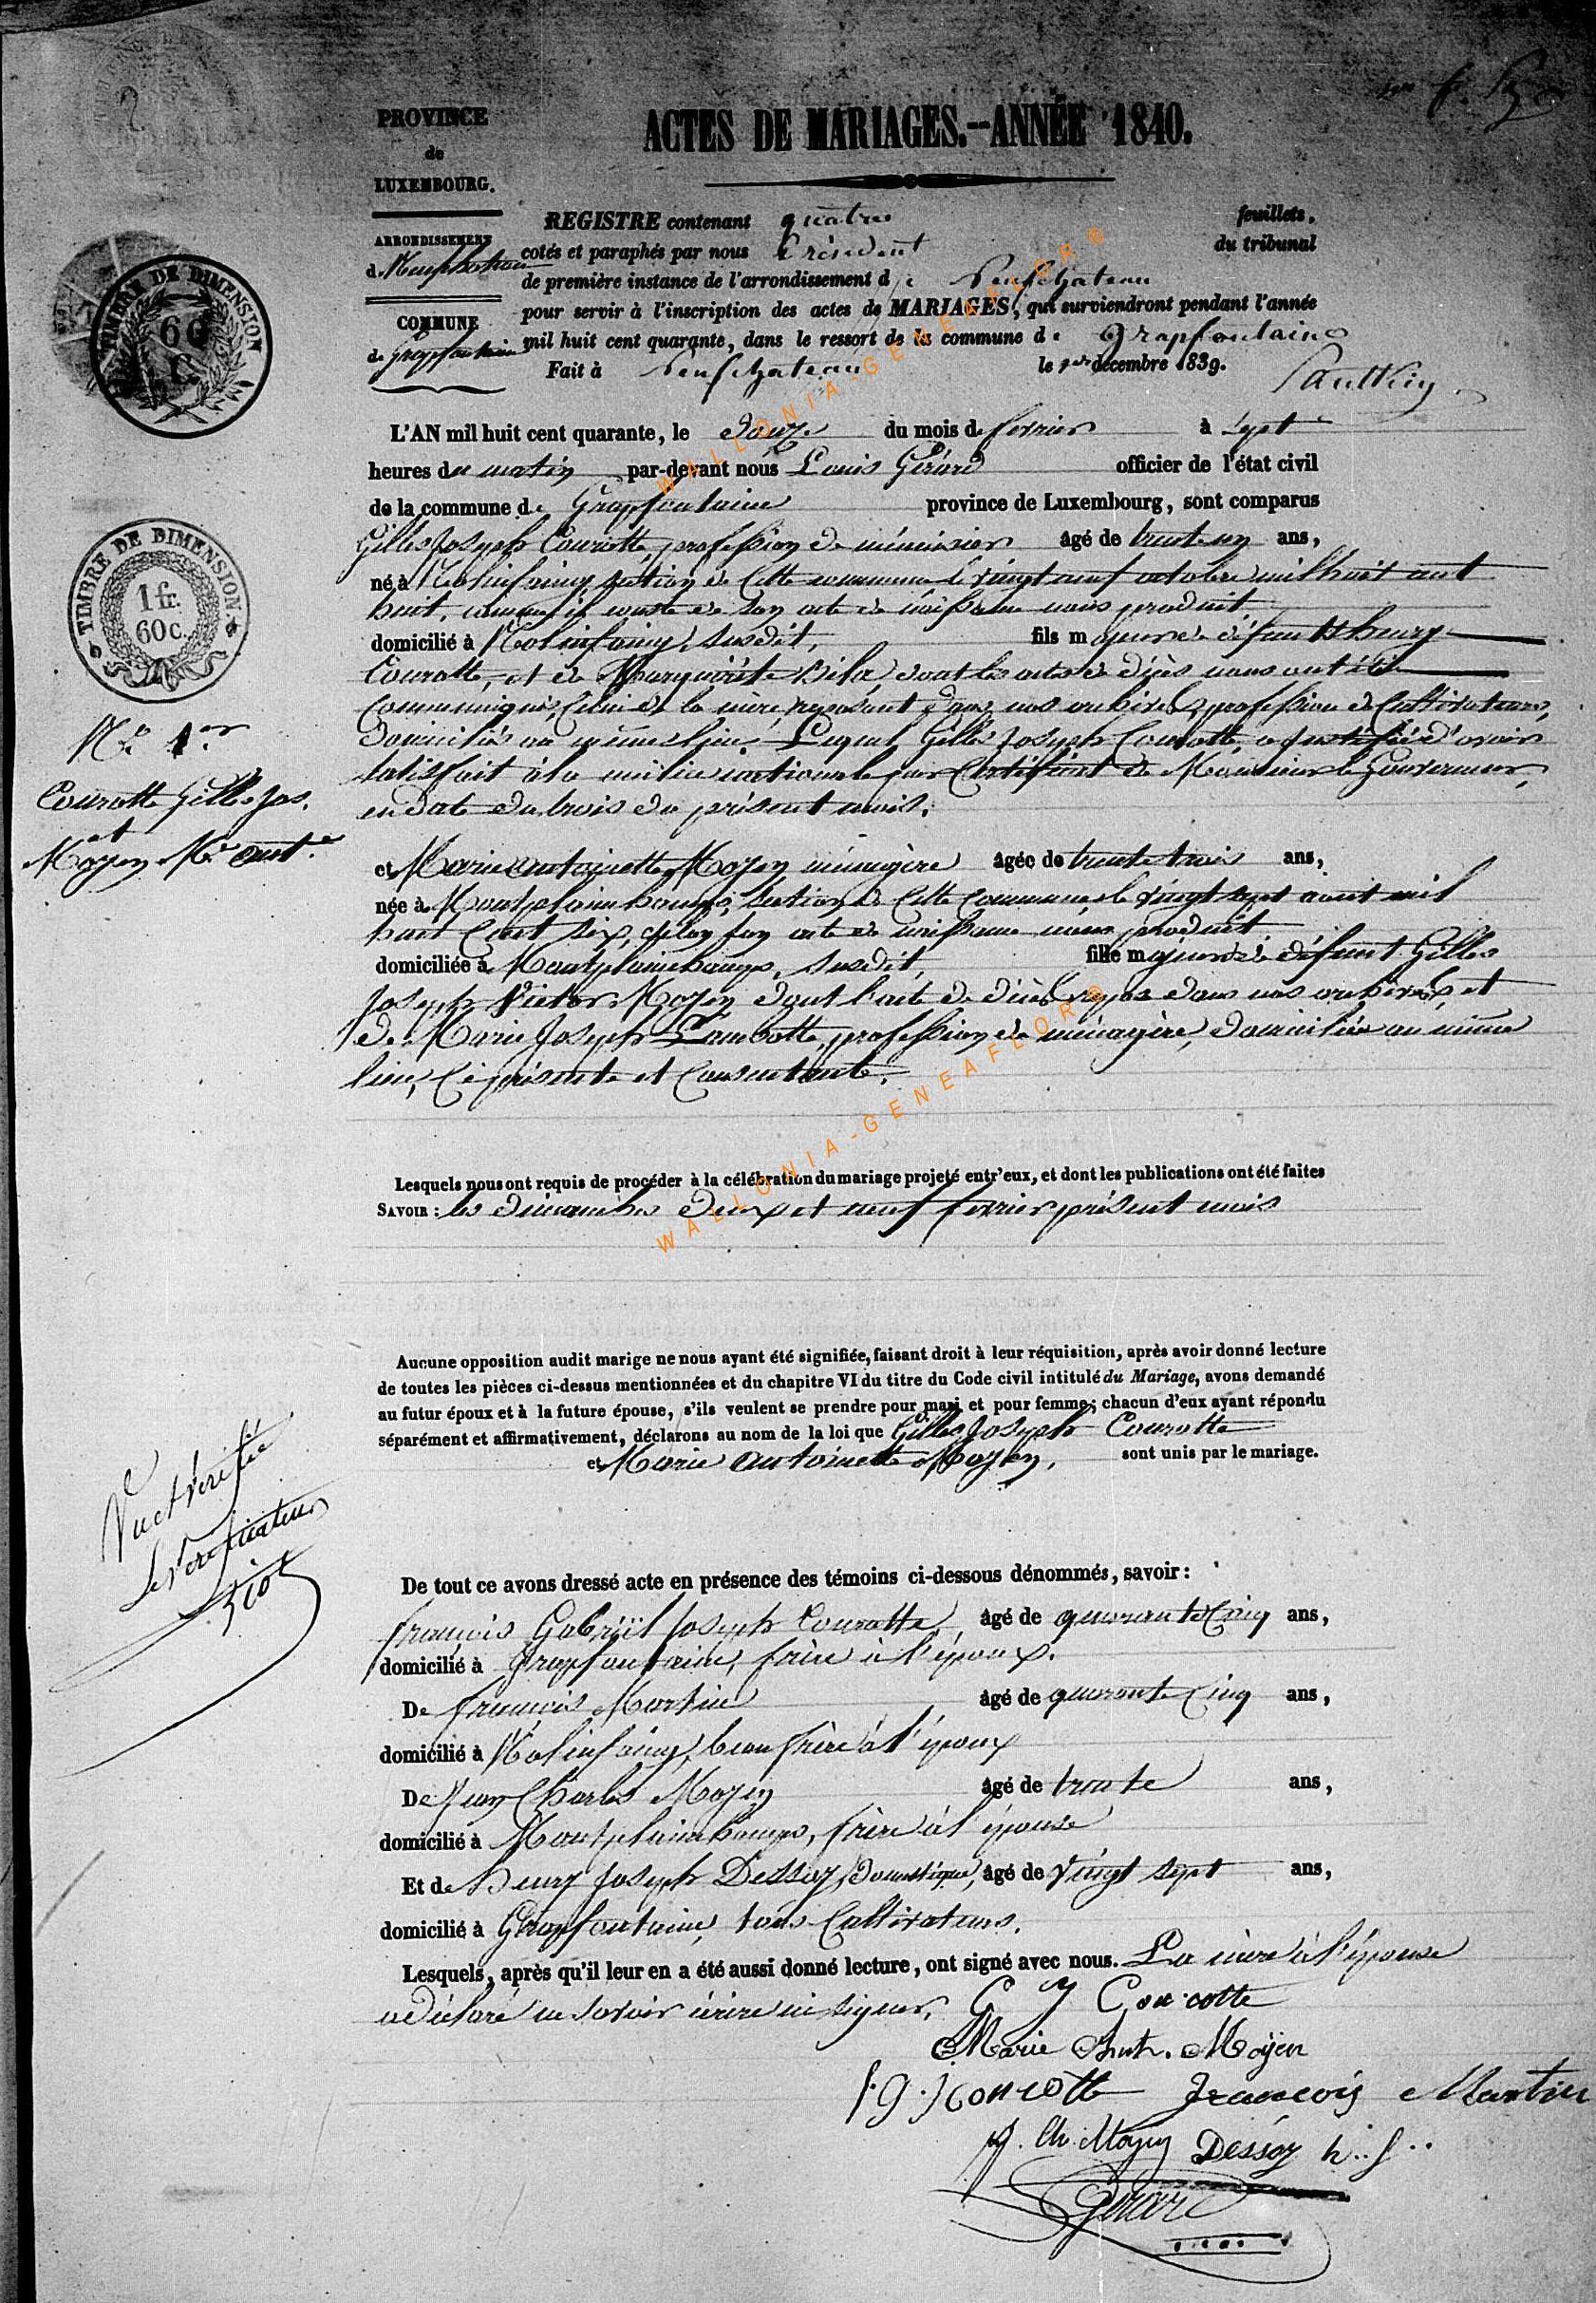 PROVINCE
de
LUXEMBOURG.
ARRONDISSEMENT
de Neufchateau
COMMUNE
de Grapfontaine
ACTES DE MARIAGES.--ANNÉE 1840.
REGISTRE contenant quatre feuillets,
cotés et paraphés par nous Président du tribunal
de première instance de l'arrondissement de Neufchateau
pour servir à l'inscription des actes de MARIAGES, qui surviendront pendant l'année
mil huit cent quarante, dans le ressort de la commune de Grapfontaine
Fait à Neufchateau le 1er décembre 1839.
TIMBRE DE DIMENSION
60 C.
L'AN mil huit cent quarante, le douze du mois de fevrier à Sept
heures du matin par-devant nous Louis Gérard officier de l'état civil
de la commune de Grapfontaine province de Luxembourg, sont comparus
Gilles Joseph Courotte, profession de menuisier âgé de trente un ans,
né à Molinfaing, section de Cette commune le vingt neuf octobre mil huit cent
huit, comme il conste de son acte de naissance nous produit,
domicilié à Molinfaing, susdit, fils majeur de défunts henry
Courotte, et de Marguérite Bila, dont les actes de décès nous ont été
Communiqués, Celui de la mère, reposant dans nos archives, profession de Cultivateurs,
Domiciliés au même lieu. Lequel Gilles Joseph Courotte, a justifié d'avoir
satisfait à la milice nationale par Certificat de Monsieur le Gouverneur,
en date du trois du présent mois.
TIMBRE DE DIMENSION
1 fr.
60 c.
No 1er
Courotte Gilles Jos.
et
Moyen Me Ant.e
et Marie antoinette Moyen ménagère âgée de trente trois ans,
née à Montplainchamps, section de Cette Commune, le vingt sept aout mil
huit Cent six, selon son acte de naissance nous produit
domiciliée à Montplainchamps, susdit, fille majeure de défunt Gilles
Joseph Victor Moyen dont l'acte de décès repose dans nos archives, et
de Marie Joseph Lambotte, profession de ménagère, domiciliée au même
lieu, Ci présente et Consentante.
Lesquels nous ont requis de procéder à la célébration du mariage projeté entr'eux, et dont les publications ont été faites
SAVOIR : les dimanches deux et neuf fevrier présent mois
Aucune opposition audit marige ne nous ayant été signifiée, faisant droit à leur réquisition, après avoir donné lecture
de toutes les pièces ci-dessus mentionnées et du chapitre VI du titre du Code civil intitulé du Mariage, avons demandé
au futur époux et à la future épouse, s'ils veulent se prendre pour mari et pour femme; chacun d'eux ayant répondu
séparément et affirmativement, déclarons au nom de la loi que Gilles Joseph Courotte
et Marie antoinette Moyen, sont unis par le mariage.
Vu et verifié
Le Verificateur
De tout ce avons dressé acte en présence des témoins ci-dessous dénommés, savoir :
François Gabriël Joseph Courotte, âgé de quarante Cinq ans,
domicilié à Grapfontaine, frère à l'époux.
De François Martin âgé de quarante Cinq ans,
domicilié à Molinfaing, beau frère à l'époux
De Jean Charles Moyen âgé de trente ans,
domicilié à Montplainchamps, frère à l'épouse
Et de Henry Joseph Dessoy, Domestique, âgé de Vingt sept ans,
domicilié à Grapfontaine, tous Cultivateurs.
Lesquels, après qu'il leur en a été aussi donné lecture, ont signé avec nous. La mère à l'épouse
a déclaré ne savoir écrire ni signer.
G J Courotte
Marie Ant. Moÿen
f. g. j courotte François Martin
J. Ch. Moyen Dessoy h. J.
Gerard
WALLONIA-GENEAFLOR ®
WALLONIA-GENEAFLOR ®